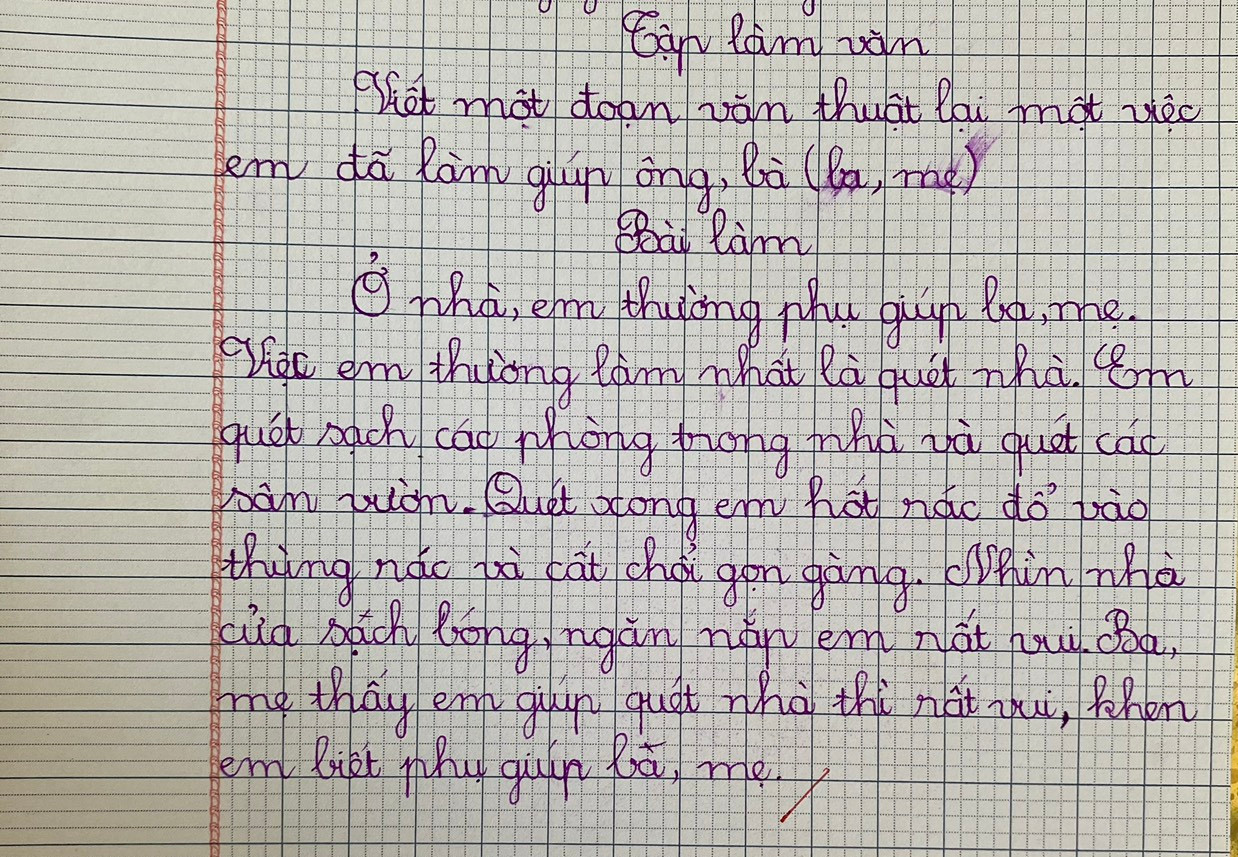 Tập làm văn
Viết một đoạn văn thuật lại một việc
em đã làm giúp ông, bà (ba, mẹ)
Bài làm
Ở nhà, em thường phụ giúp ba, mẹ.
Việc em thường làm nhất là quét nhà. Em
quét sạch các phòng trong nhà và quét các
sân vườn. Quét xong em hốt rác đổ vào
thùng rác và cất chổi gọn gàng. Nhìn nhà
cửa sạch bóng, ngăn nắp em rất vui. Ba,
mẹ thấy em giúp quét nhà thì rất vui, khen
em biết phụ giúp ba, mẹ.